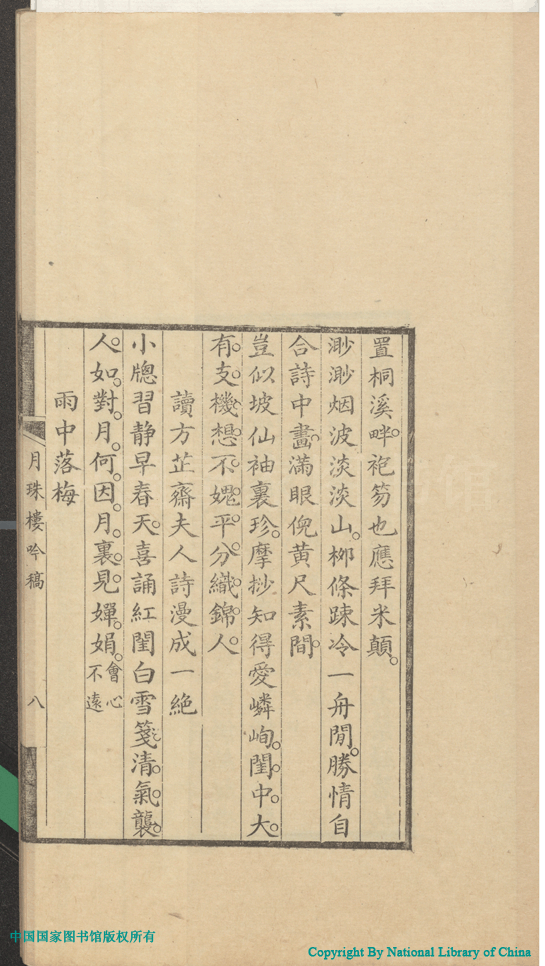 置桐溪畔。袍笏也應拜米顛。
渺渺烟波淡淡山。栁條踈冷一舟閒。勝情自
合詩中畵。滿眼倪黃尺素間。
豈似坡仙袖裏珍。摩抄知得愛嶙峋。閨中大
有支機想。不媿平分織錦人。
讀方芷齋夫人詩漫成一絕
小牕習靜早春天。喜誦紅閨白雪箋。清氣襲
人如對月。何因月裏見嬋娟。會心不遠
雨中落梅
月珠樓吟稿 八
中国国家图书馆版权所有
Copyright By National Library of China